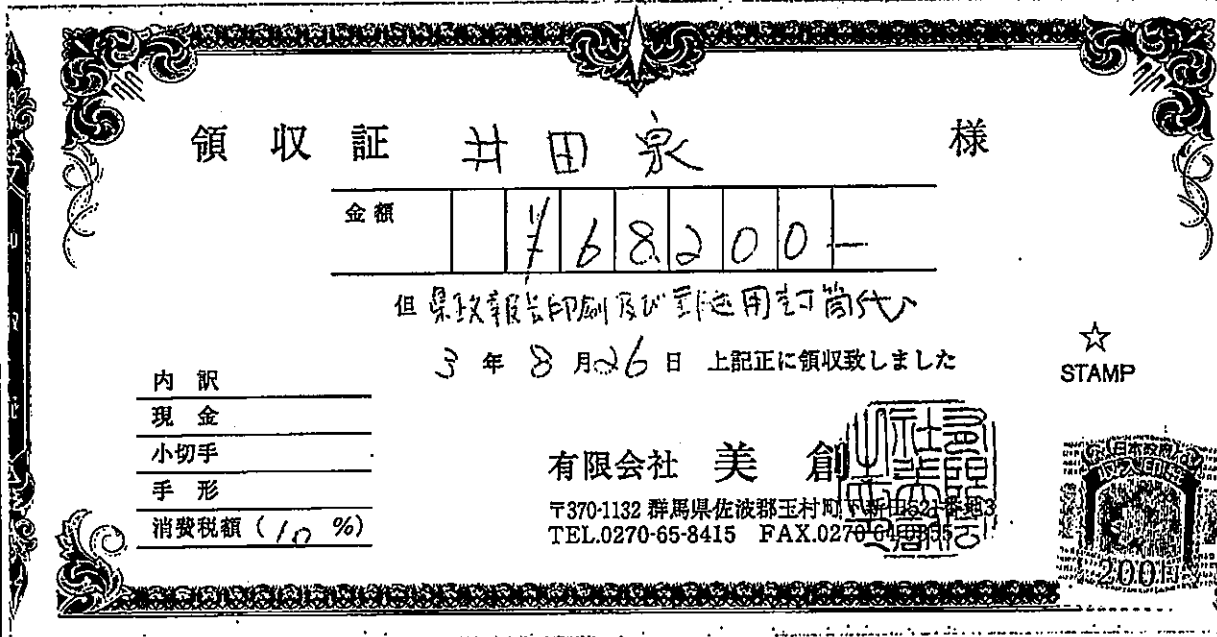 領収証 井田泉 様
金額 ¥68200-
但 県政報告印刷及び郵送用封筒代
3年8月26日 上記正に領収致しました
☆
STAMP
内訳
現金
小切手
手形
消費税額(10%)
有限会社 美創
〒370-1132 群馬県佐波郡玉村町下新田521番地3
TEL.0270-65-8415 FAX.0270-64-
日本政府
200円